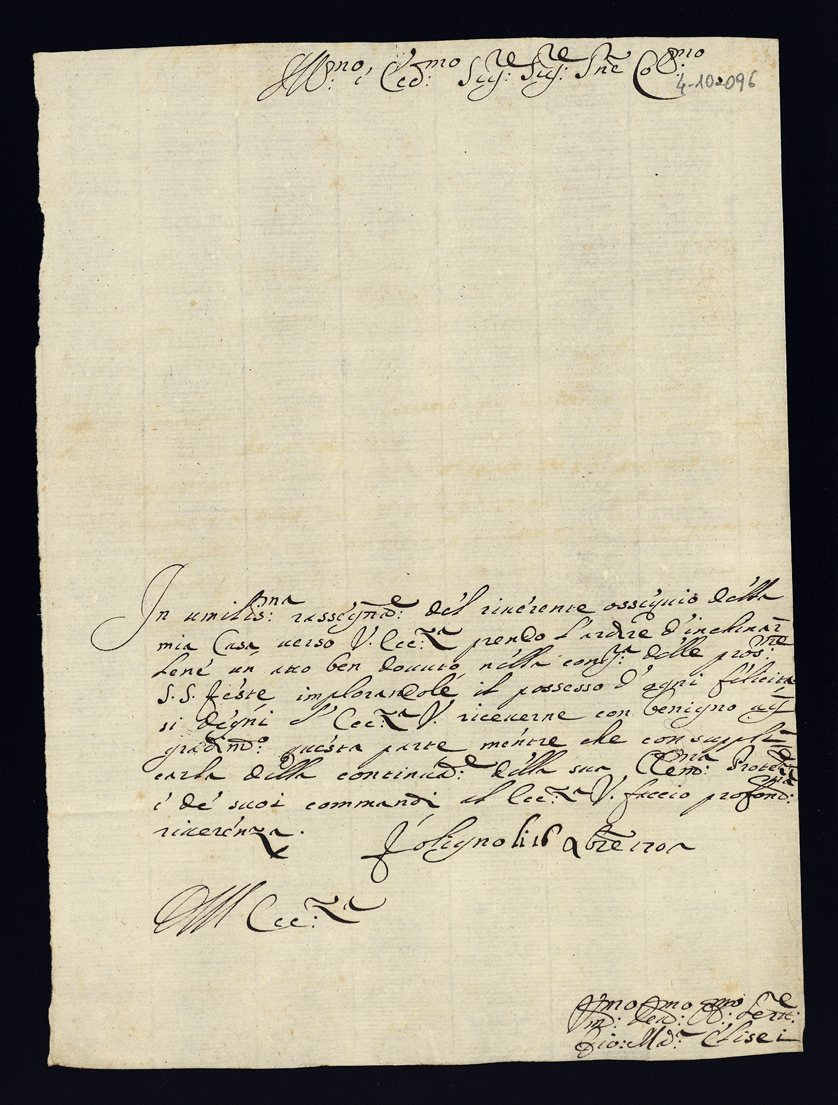 Ill:mo é Ecc:mo Sig:re Sig:re Pne Col:mo
4-10-096
In umiliss:ma rassegne: dél riuérente osséquio délla
mia Casa uerso V. Ecc:za prendo l'ardire d'inchinar
Lené un atto ben douuto nélla cong:a délle pross:me
S.S. féste implorandolé il possesso d'ogni félicita
si dégni l'Ecc:za V. riceuerne con benigno
gradim:o questa parte méntre che con suppli
carla délla continuad:e délla sua Clem:ma Protez:e
é dé suoi commandi al Ecc:za V. faccio profond:ma
riuerénza.
Foligno li 16 Xbre 1701
D V Ill Ecc:za
Um:mo Deu:mo Obb:mo Seru:e
Gio: M:a Elisei